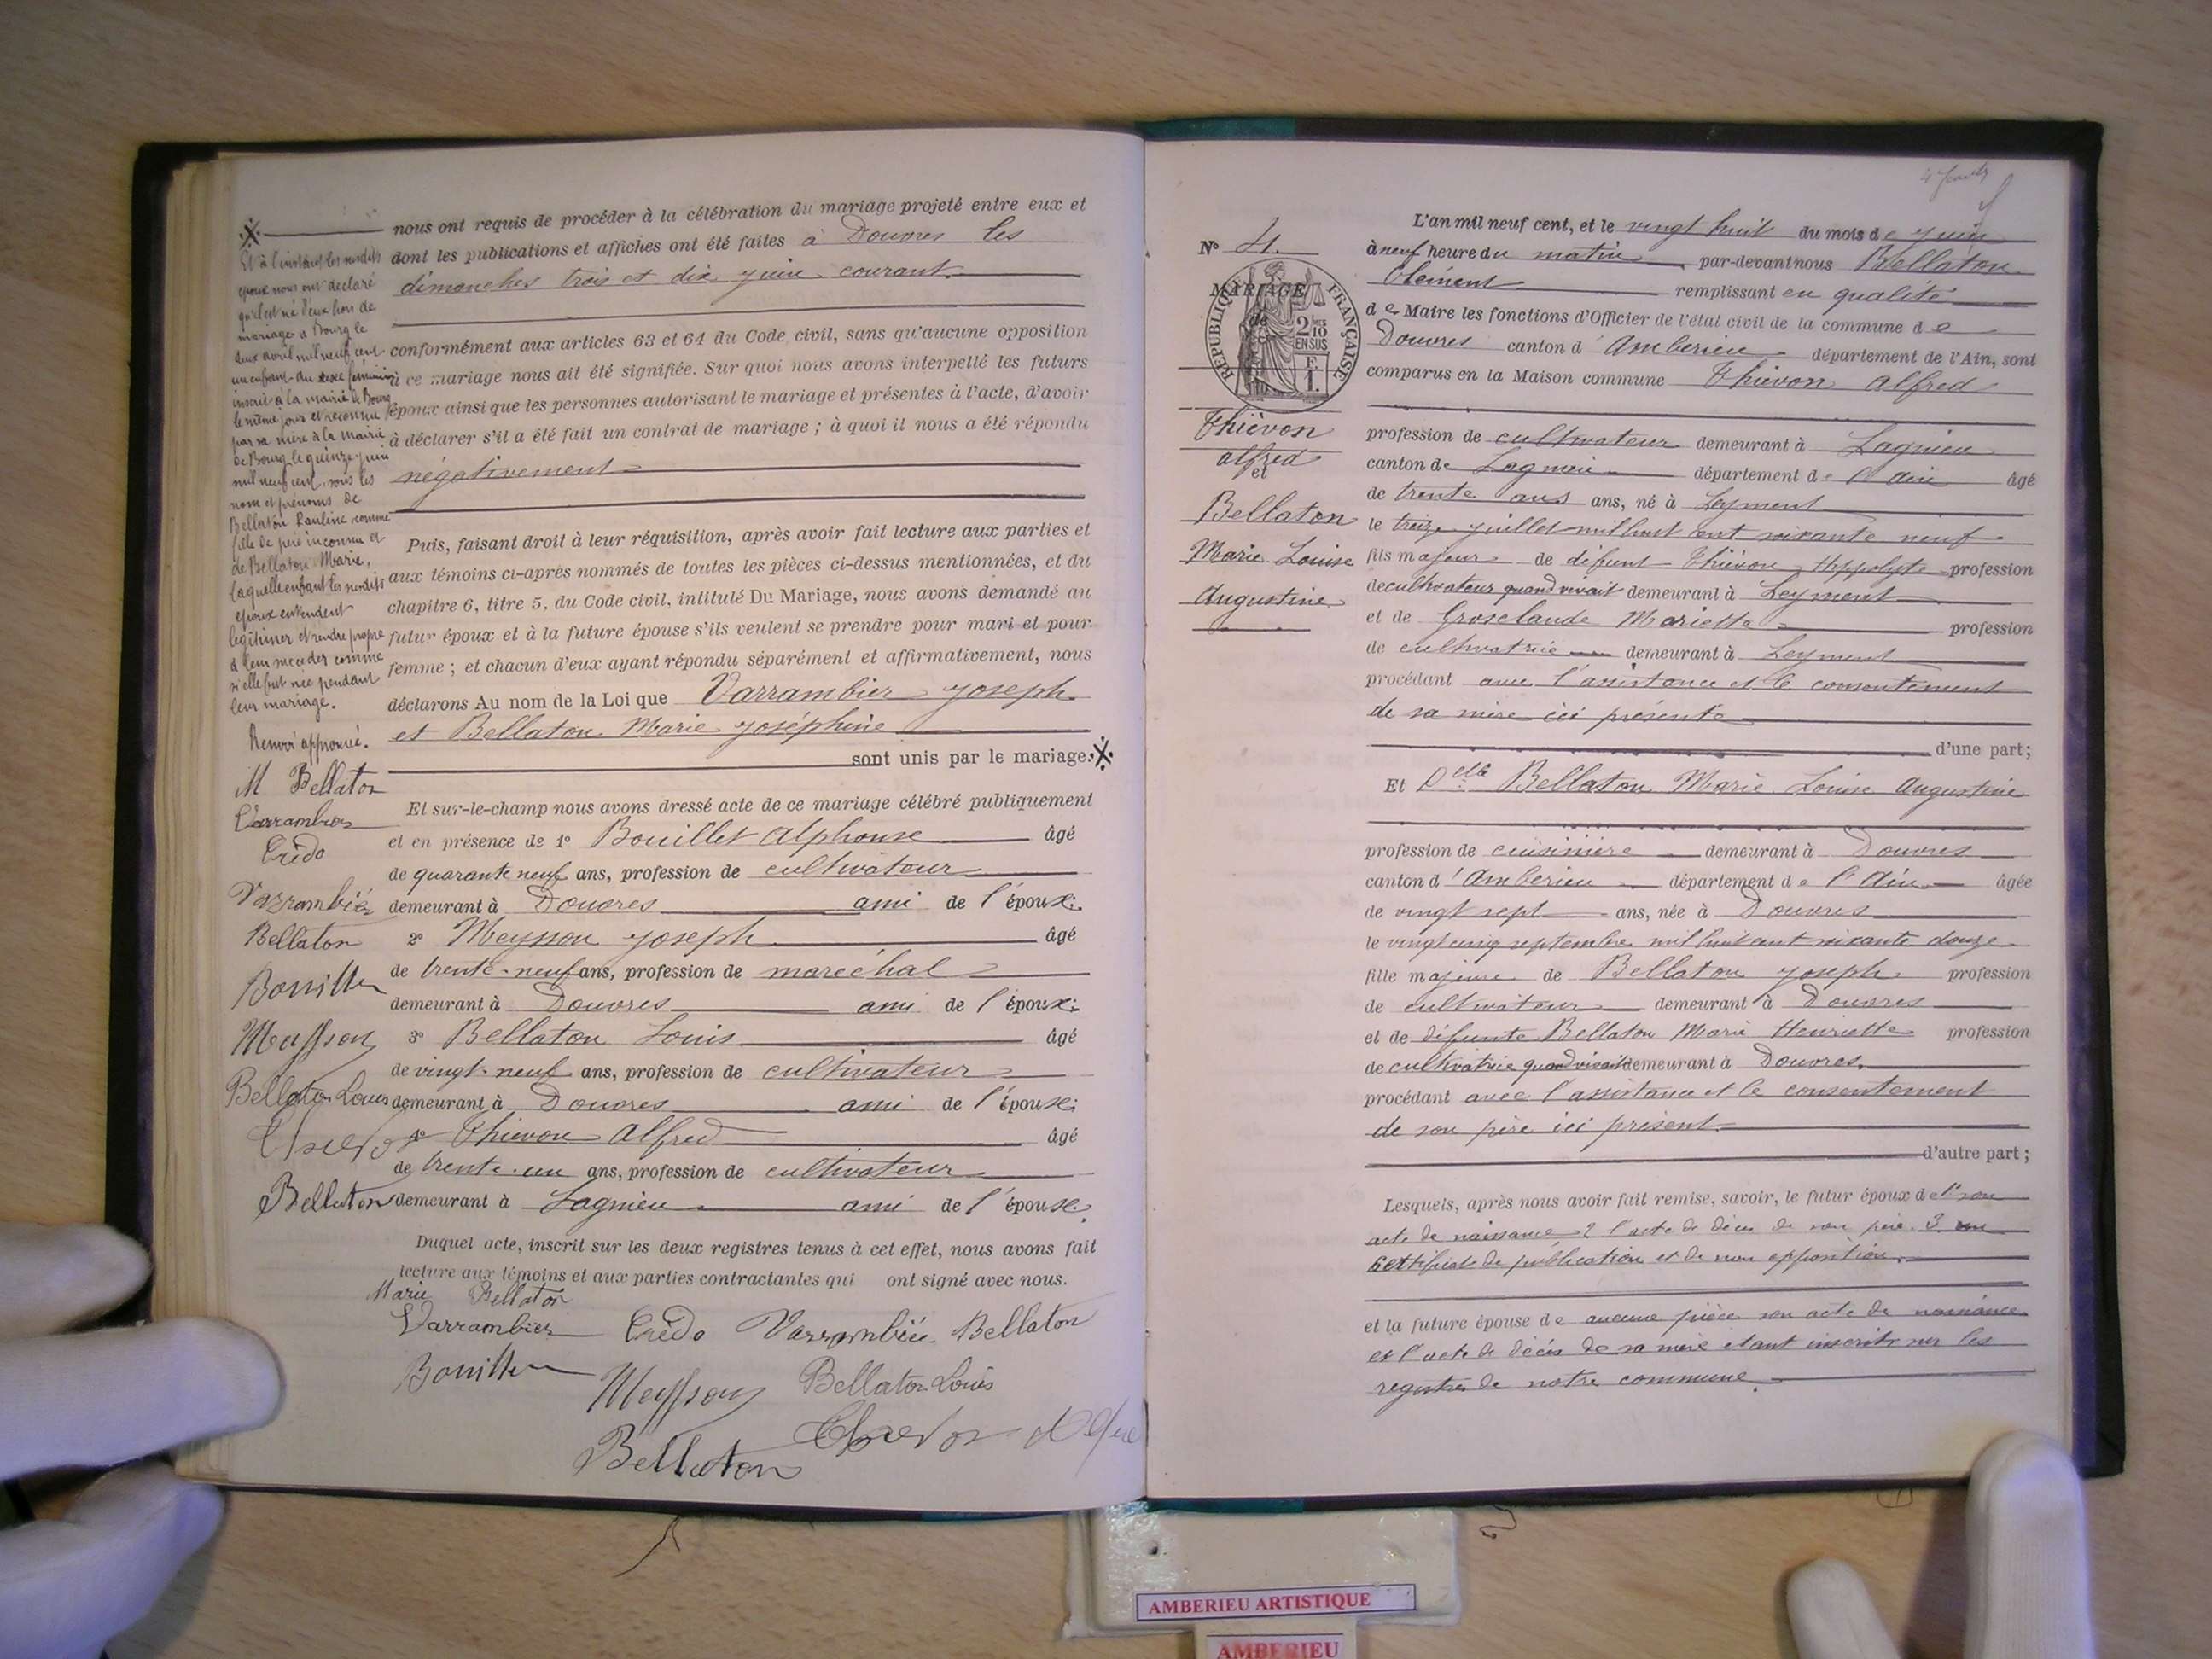 nous ont requis de procéder à la célébration du mariage projeté entre eux et
dont les publications et affiches ont été faites à Douvres les
dimanches trois et dix juin courant.
conformément aux articles 63 et 64 du Code civil, sans qu'aucune opposition
à ce mariage nous ait été signifiée. Sur quoi nous avons interpellé les futurs
époux ainsi que les personnes autorisant le mariage et présentes à l'acte, d'avoir
à déclarer s'il a été fait un contrat de mariage ; à quoi il nous a été répondu
négativement
Puis, faisant droit à leur réquisition, après avoir fait lecture aux parties et
aux témoins ci-après nommés de toutes les pièces ci-dessus mentionnées, et du
chapitre 6, titre 5, du Code civil, intitulé Du Mariage, nous avons demandé au
futur époux et à la future épouse s'ils veulent se prendre pour mari et pour
femme ; et chacun d'eux ayant répondu séparément et affirmativement, nous
déclarons Au nom de la Loi que Varrambier Joseph
et Bellaton Marie Joséphine
sont unis par le mariage.
Et sur-le-champ nous avons dressé acte de ce mariage célébré publiquement
et en présence de 1° Bouillet Alphonse âgé
de quarante neuf ans, profession de cultivateur
demeurant à Douvres ami de l'époux.
2° Meysson Joseph âgé
de trente-neuf ans, profession de maréchal
demeurant à Douvres ami de l'époux.
3° Bellaton Louis âgé
de vingt-neuf ans, profession de cultivateur
demeurant à Douvres ami de l'épouse
4° Thievon Alfred âgé
de trente-un ans, profession de cultivateur
demeurant à Lagnieu ami de l'épouse.
Duquel acte, inscrit sur les deux registres tenus à cet effet, nous avons fait
lecture aux témoins et aux parties contractantes qui ont signé avec nous.
Marie Bellaton
Varrambier Crédo Varrambier Bellaton
Bouillet
Meysson Bellaton Louis
Bellaton
Et à l'instant les susdits
époux nous ont déclaré
qu'il est né d'eux hors de
mariage à Bourg le
deux avril mil neuf cent
un enfant du sexe féminin
inscrit à la mairie de Bourg
le même jour et reconnu
par sa mère à la mairie
de Bourg le quinze juin
mil neuf cent, sous les
nom et prénoms de
Bellaton Pauline comme
fille de père inconnu et
de Bellaton Marie,
laquelle enfant les susdits
époux entendent
légitimer et rendre propre
à leur succéder comme
si elle fut née pendant
leur mariage.
Renvoi approuvé.
M Bellaton
Varrambier
Crédo
Varrambier
Bellaton
Bouillet
Meysson
Bellaton Louis
Bellaton
N° 4.
MARIAGE
de
RÉPUBLIQUE FRANÇAISE
2/10
EN SUS
Thièvon
alfred
et
Bellaton
Marie Louise
Augustine
L'an mil neuf cent, et le vingt huit du mois de juin
à neuf heure du matin par-devant nous Bellaton
Clément remplissant en qualité
de Maire les fonctions d'Officier de l'état civil de la commune de
Douvres canton d'Ambérieu département de l'Ain, sont
comparus en la Maison commune Thievon Alfred
profession de cultivateur demeurant à Lagnieu
canton de Lagnieu département de l'Ain âgé
de trente ans ans, né à Leyment
le treize juillet mil huit cent soixante neuf
fils majeur de défunt Thiévon Hyppolyte profession
de cultivateur quand vivait demeurant à Leyment
et de Groselande Mariette profession
de cultivatrice demeurant à Leyment
procédant avec l'assistance et le consentement
de sa mère ici présente
d'une part;
Et Delle Bellaton Marie Louise Augustine
profession de cuisinière demeurant à Douvres
canton d'Ambérieu département de l'Ain âgée
de vingt sept ans, née à Douvres
le vingt cinq septembre mil huit cent soixante douze
fille majeure de Bellaton Joseph profession
de cultivateur demeurant à Douvres
et de défunte Bellaton Marie Henriette profession
de cultivatrice quand vivait demeurant à Douvres.
procédant avec l'assistance et le consentement
de son père ici présent.
d'autre part ;
Lesquels, après nous avoir fait remise, savoir, le futur époux de 1° son
acte de naissance 2 l'acte de décès de son père. 3 un
certificat de publication et de non opposition.
et la future épouse de aucune pièce son acte de naissance
et l'acte de décès de sa mère étant inscrits sur les
registres de notre commune.
AMBERIEU ARTISTIQUE
AMBERIEU